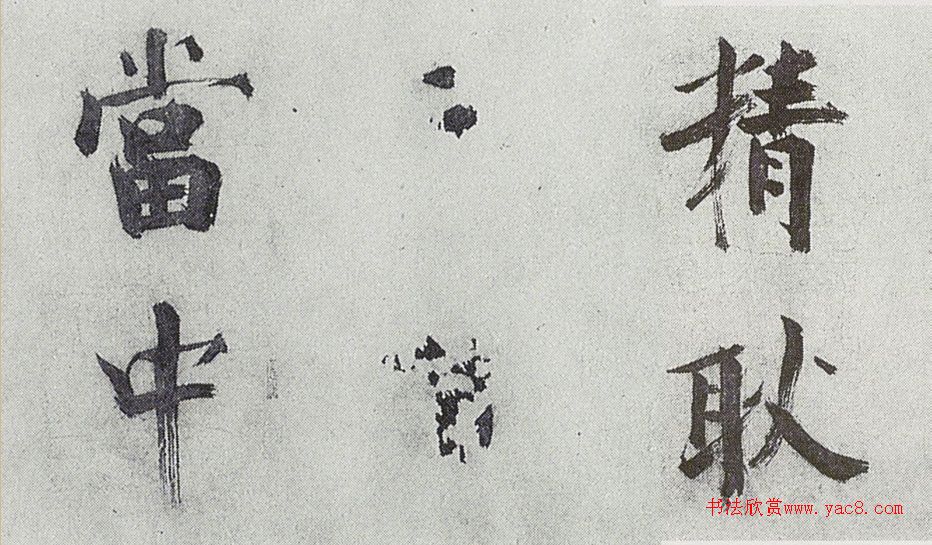 精耿
當中
书法欣赏www.yac8.com